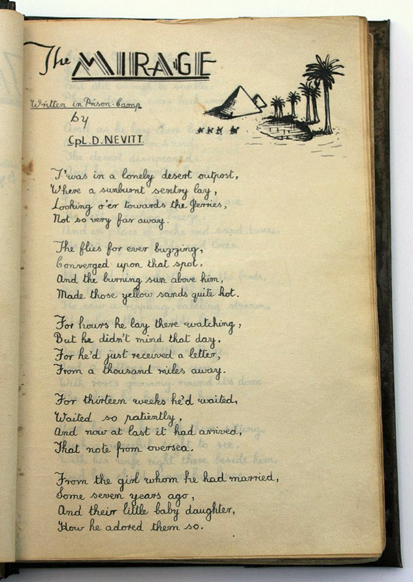 The MIRAGE
Written in Prison-Camp
by
CPL. D. NEVITT.
T'was in a lonely desert outpost,
Where a sunburnt sentry lay,
Looking o'er towards the Jerries,
Not so very far away.
The flies for ever buzzing,
Converged upon that spot,
And the burning sun above him,
Made those yellow sands quite hot.
For hours he lay there watching,
But he didn't mind that day,
For he'd just received a letter,
From a thousand miles away.
For thirteen weeks he'd waited,
Waited so patiently,
And now at last it had arrived,
That note from oversea.
From the girl whom he had married,
Some seven years ago,
And their little baby daughter,
How he adored them so.